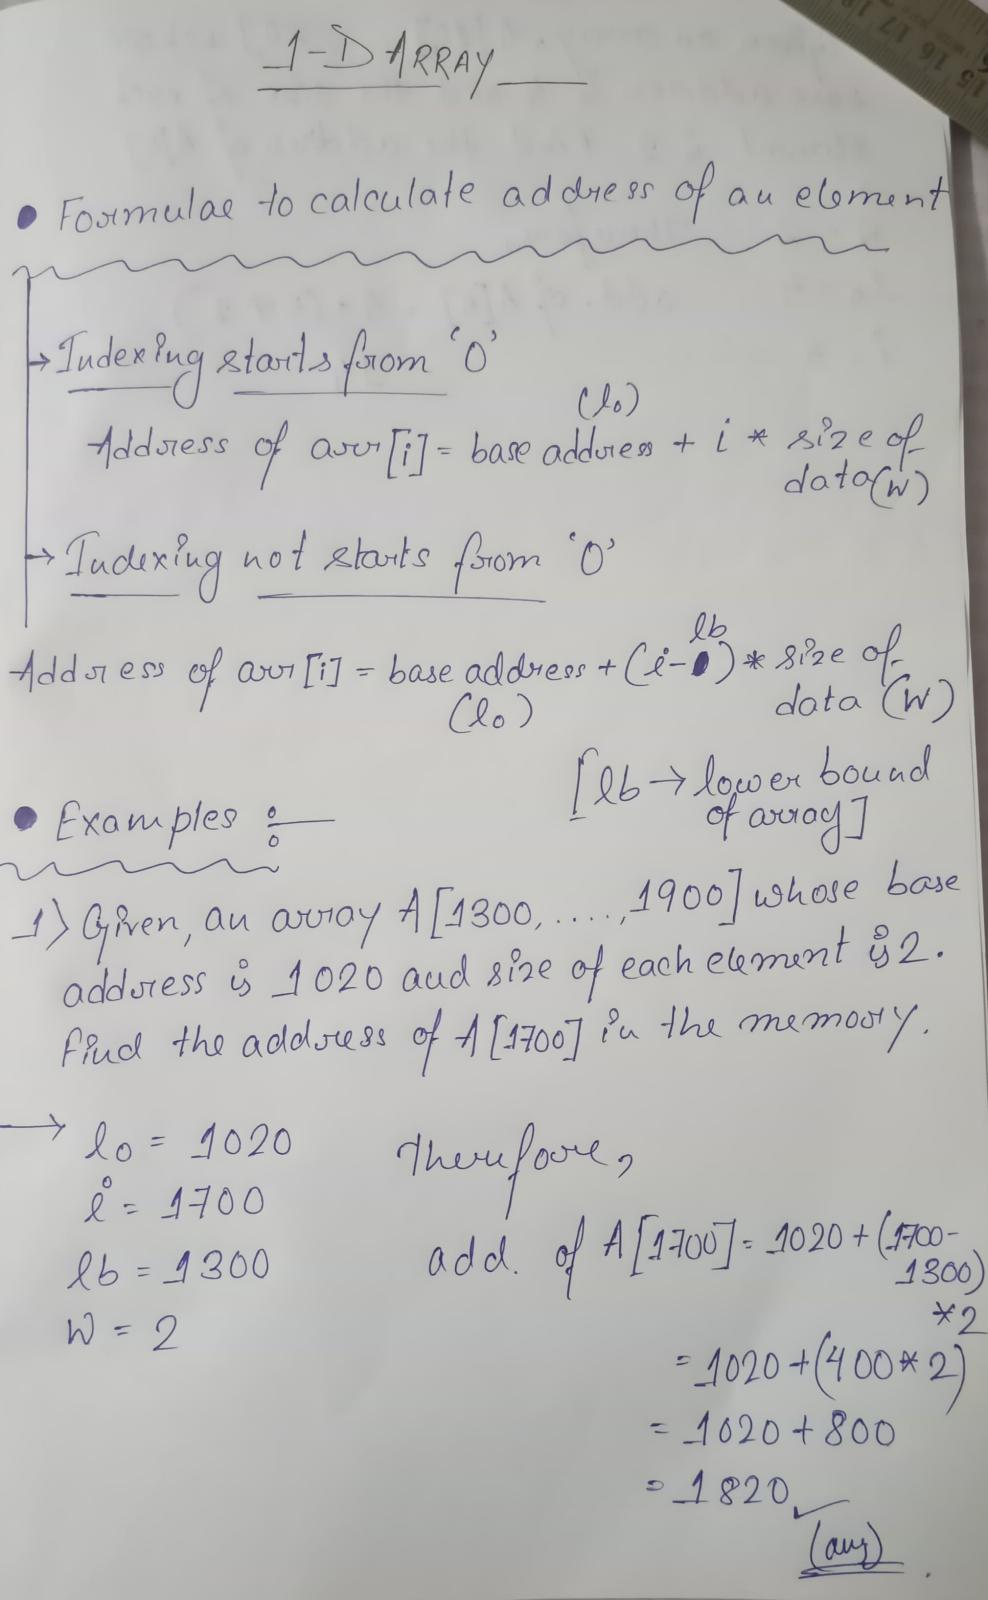 1-D ARRAY
• Formulae to calculate address of an element
→ Indexing starts from '0'
(l₀)
Address of arr[i] = base address + i * size of
data(W)
→ Indexing not starts from '0'
lb
Address of arr[i] = base address + (i- ) * size of
(l₀) data (W)
[lb → lower bound
of array]
• Examples :-
1) Given, an array A[1300, ....., 1900] whose base
address is 1020 and size of each element is 2.
Find the address of A[1700] in the memory.
→ l₀ = 1020
i = 1700
lb = 1300
W = 2
Therefore,
add. of A[1700] = 1020 + (1700-
1300)
*2
= 1020 + (400 * 2)
= 1020 + 800
= 1820 ✓
(ans)
15 16 17 18